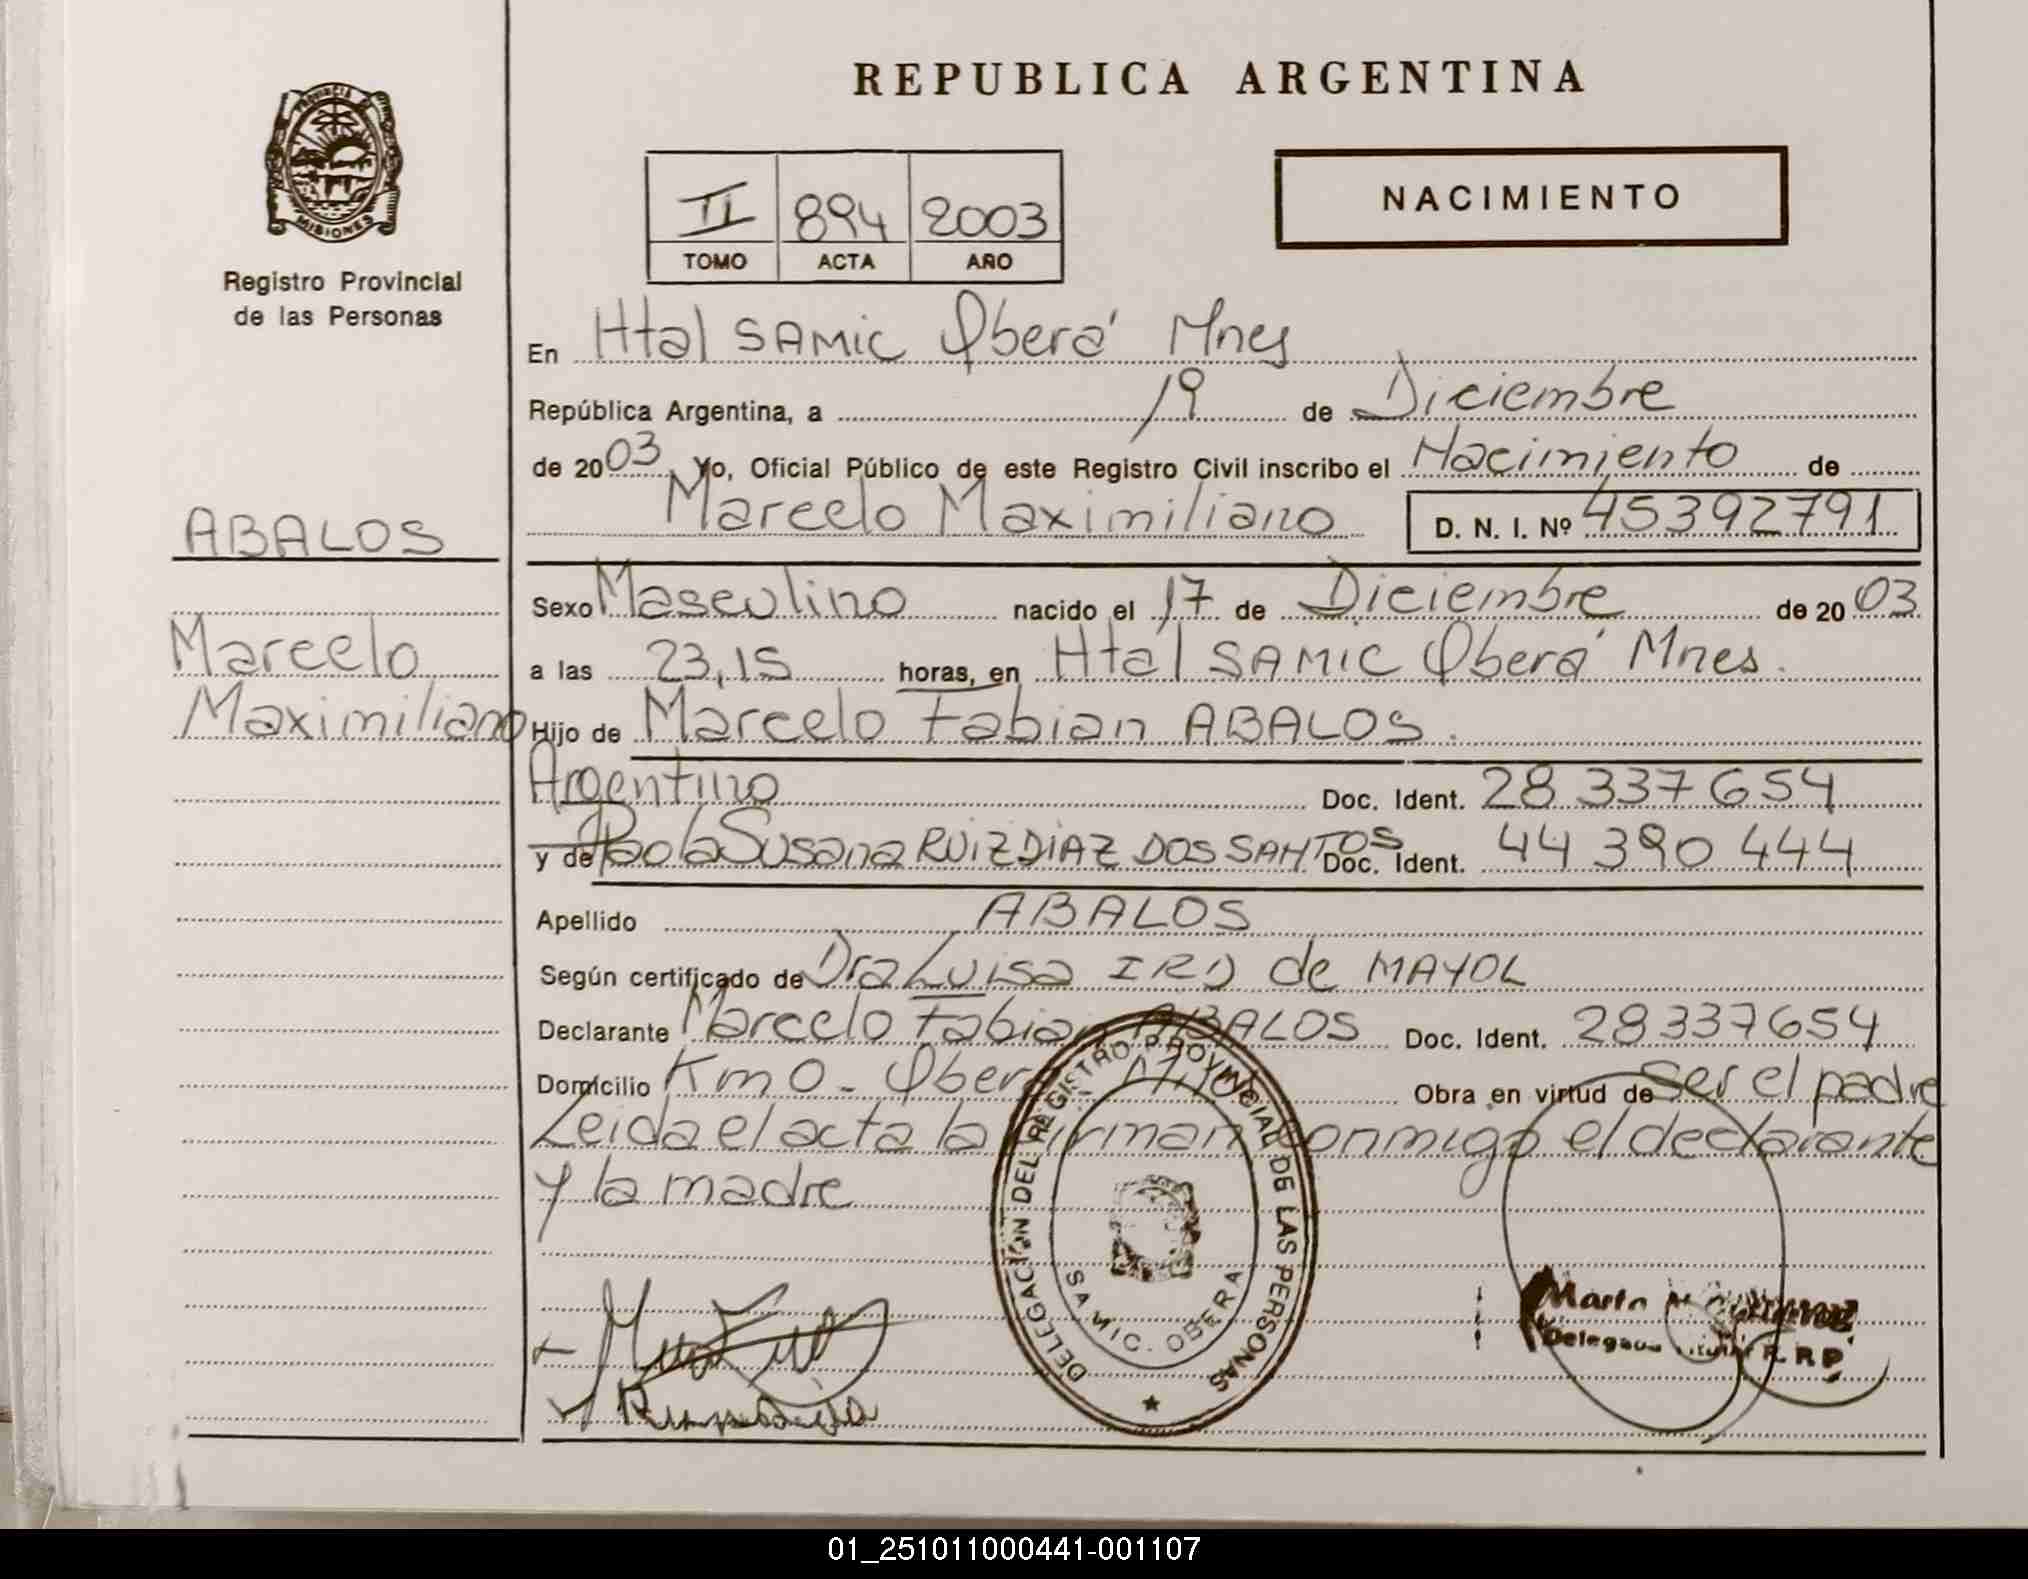 REPUBLICA ARGENTINA
PROVINCIA DE
MISIONES
Registro Provincial
de las Personas
II 894 2003
TOMO ACTA AÑO
NACIMIENTO
En Htal SAMIC Oberá Mnes
República Argentina, a 19 de Diciembre
de 2003 Yo, Oficial Público de este Registro Civil inscribo el Nacimiento de
Marcelo Maximiliano D. N. I. Nº 45392791
ABALOS
Marcelo
Maximiliano
Sexo Masculino nacido el 17 de Diciembre de 2003
a las 23,15 horas, en Htal SAMIC Oberá Mnes.
Hijo de Marcelo Fabian ABALOS.
Argentino Doc. Ident. 28 337 654
y de Paola Susana RUIZ DIAZ DOS SANTOS Doc. Ident. 44 390 444
Apellido ABALOS
Según certificado de Dra Luisa IRD de MAYOL
Declarante Marcelo Fabian ABALOS Doc. Ident. 28337654
Domicilio Km 0 - Oberá Mnes Obra en virtud de ser el padre
Leida el acta la firman conmigo el declarante
y la madre
DELEGACION DEL REGISTRO PROVINCIAL DE LAS PERSONAS
SAMIC. OBERA
Marta
R. R. P.
01_251011000441-001107